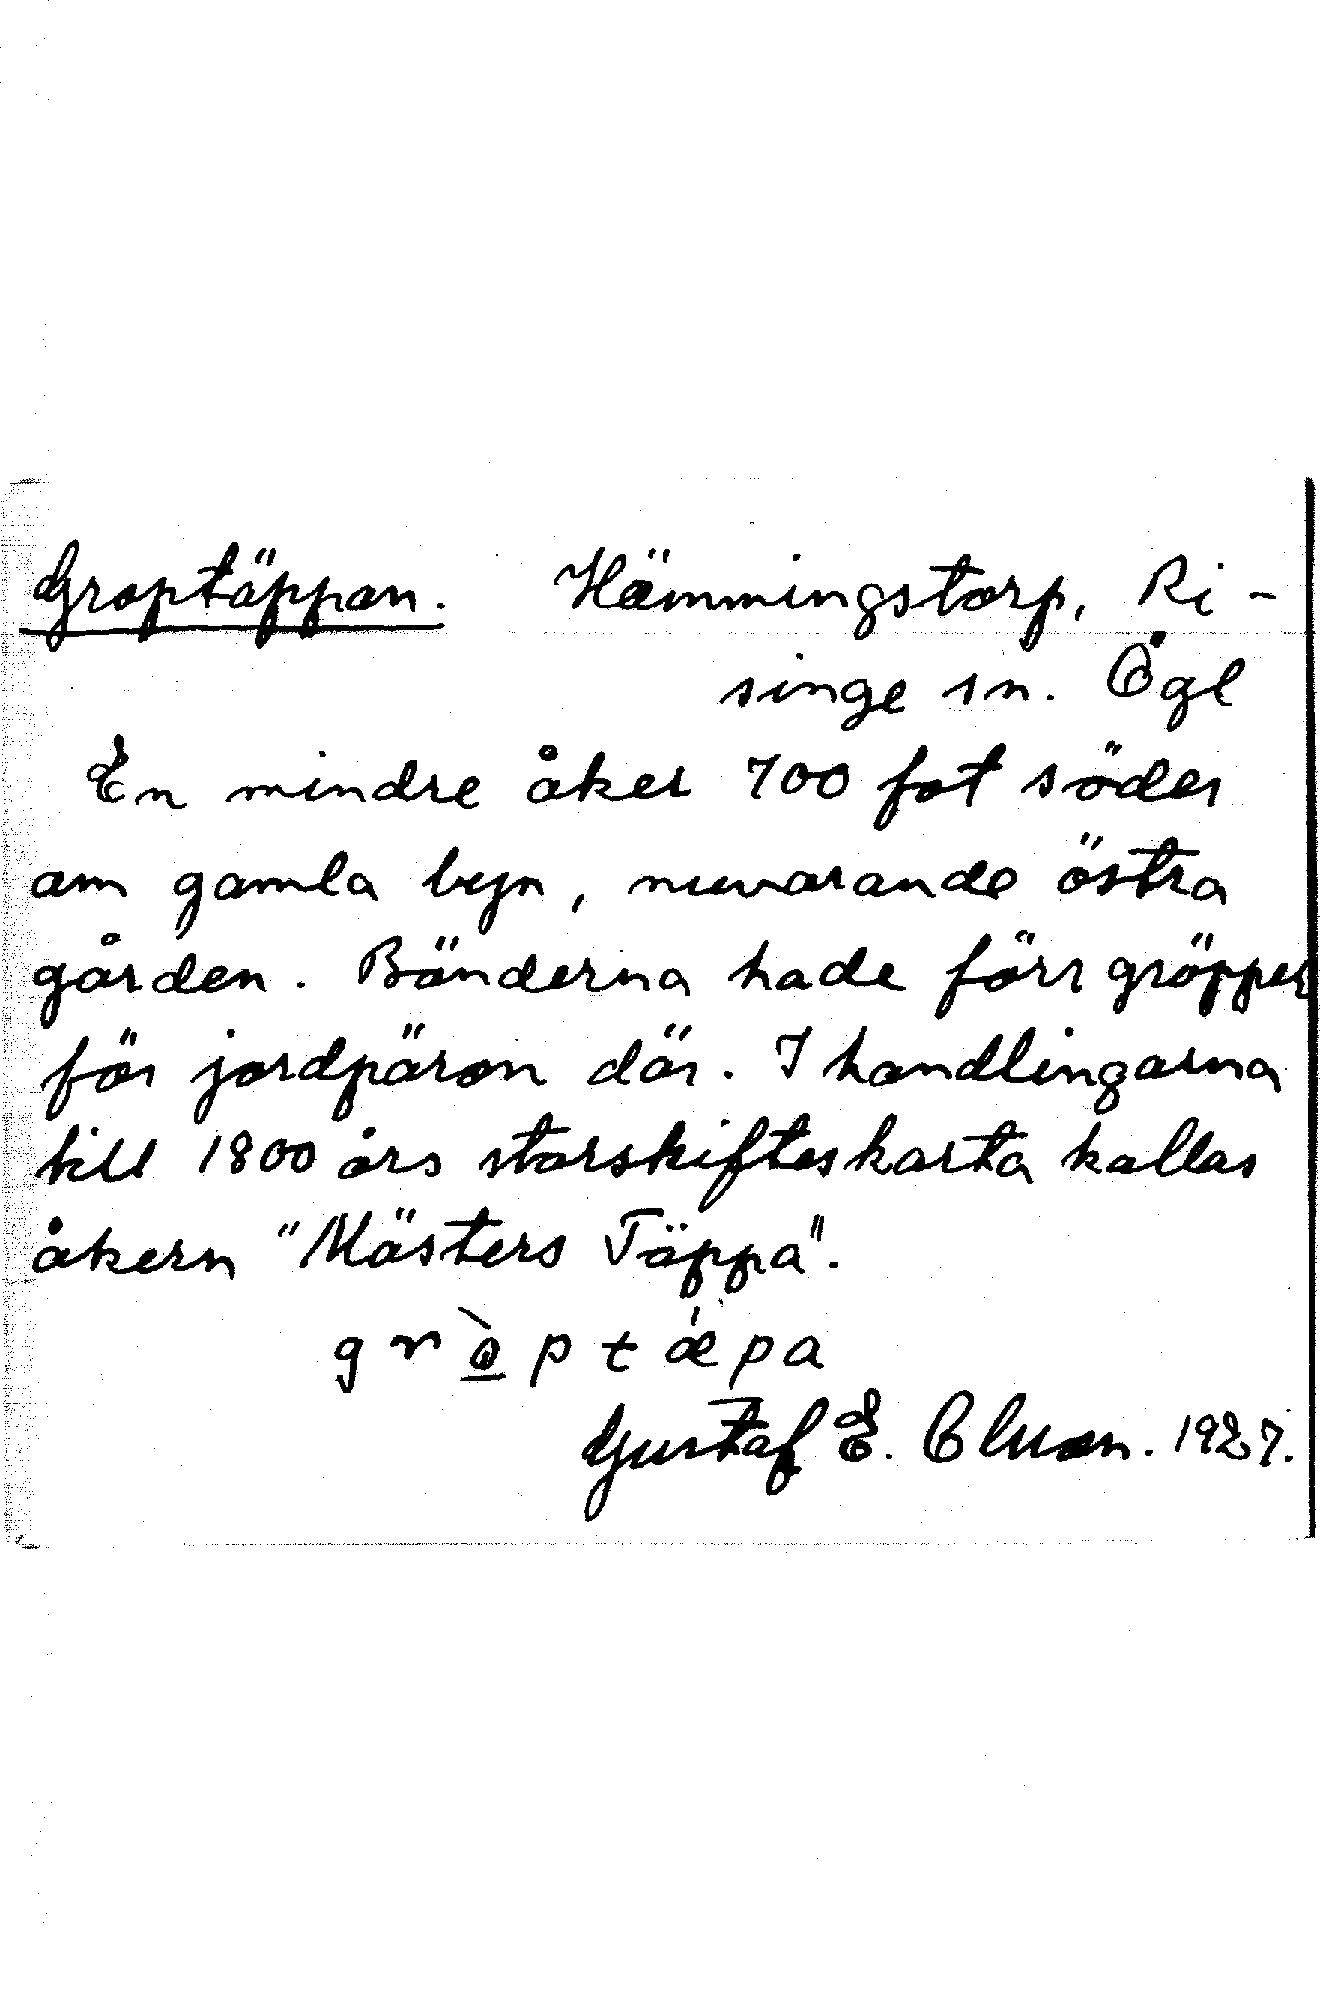 Groptäppan. Hämmingstorp, Ri-
singe sn. Ögl
En mindre åker 700 fot söder
om gamla byn, nuvarande östra
gården. Bönderna hade förr gröpper
för jordpäron där. I handlingarna
till 1800 års storskifteskarta kallas
åkern "Mästers Täppa".
grò̱ptǽpa
Gustaf E. Cluson. 1927.